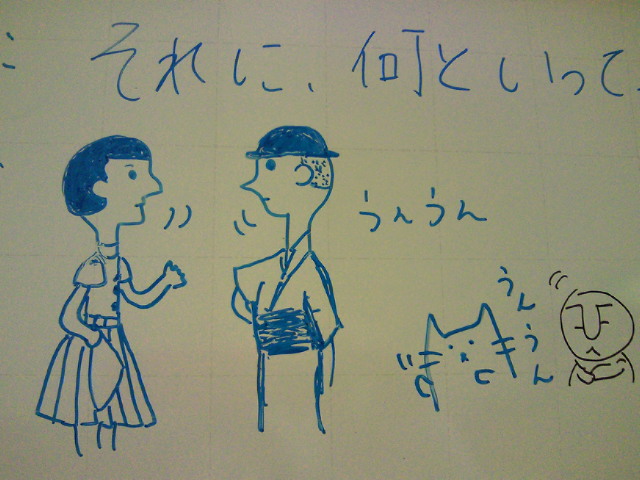 それに、何といって
うんうん
うん
うん